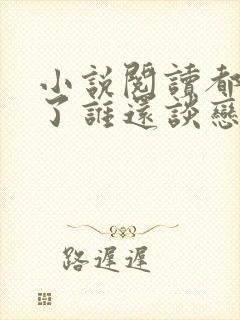 小說閱讀都
了誰還談戀
路遲遲